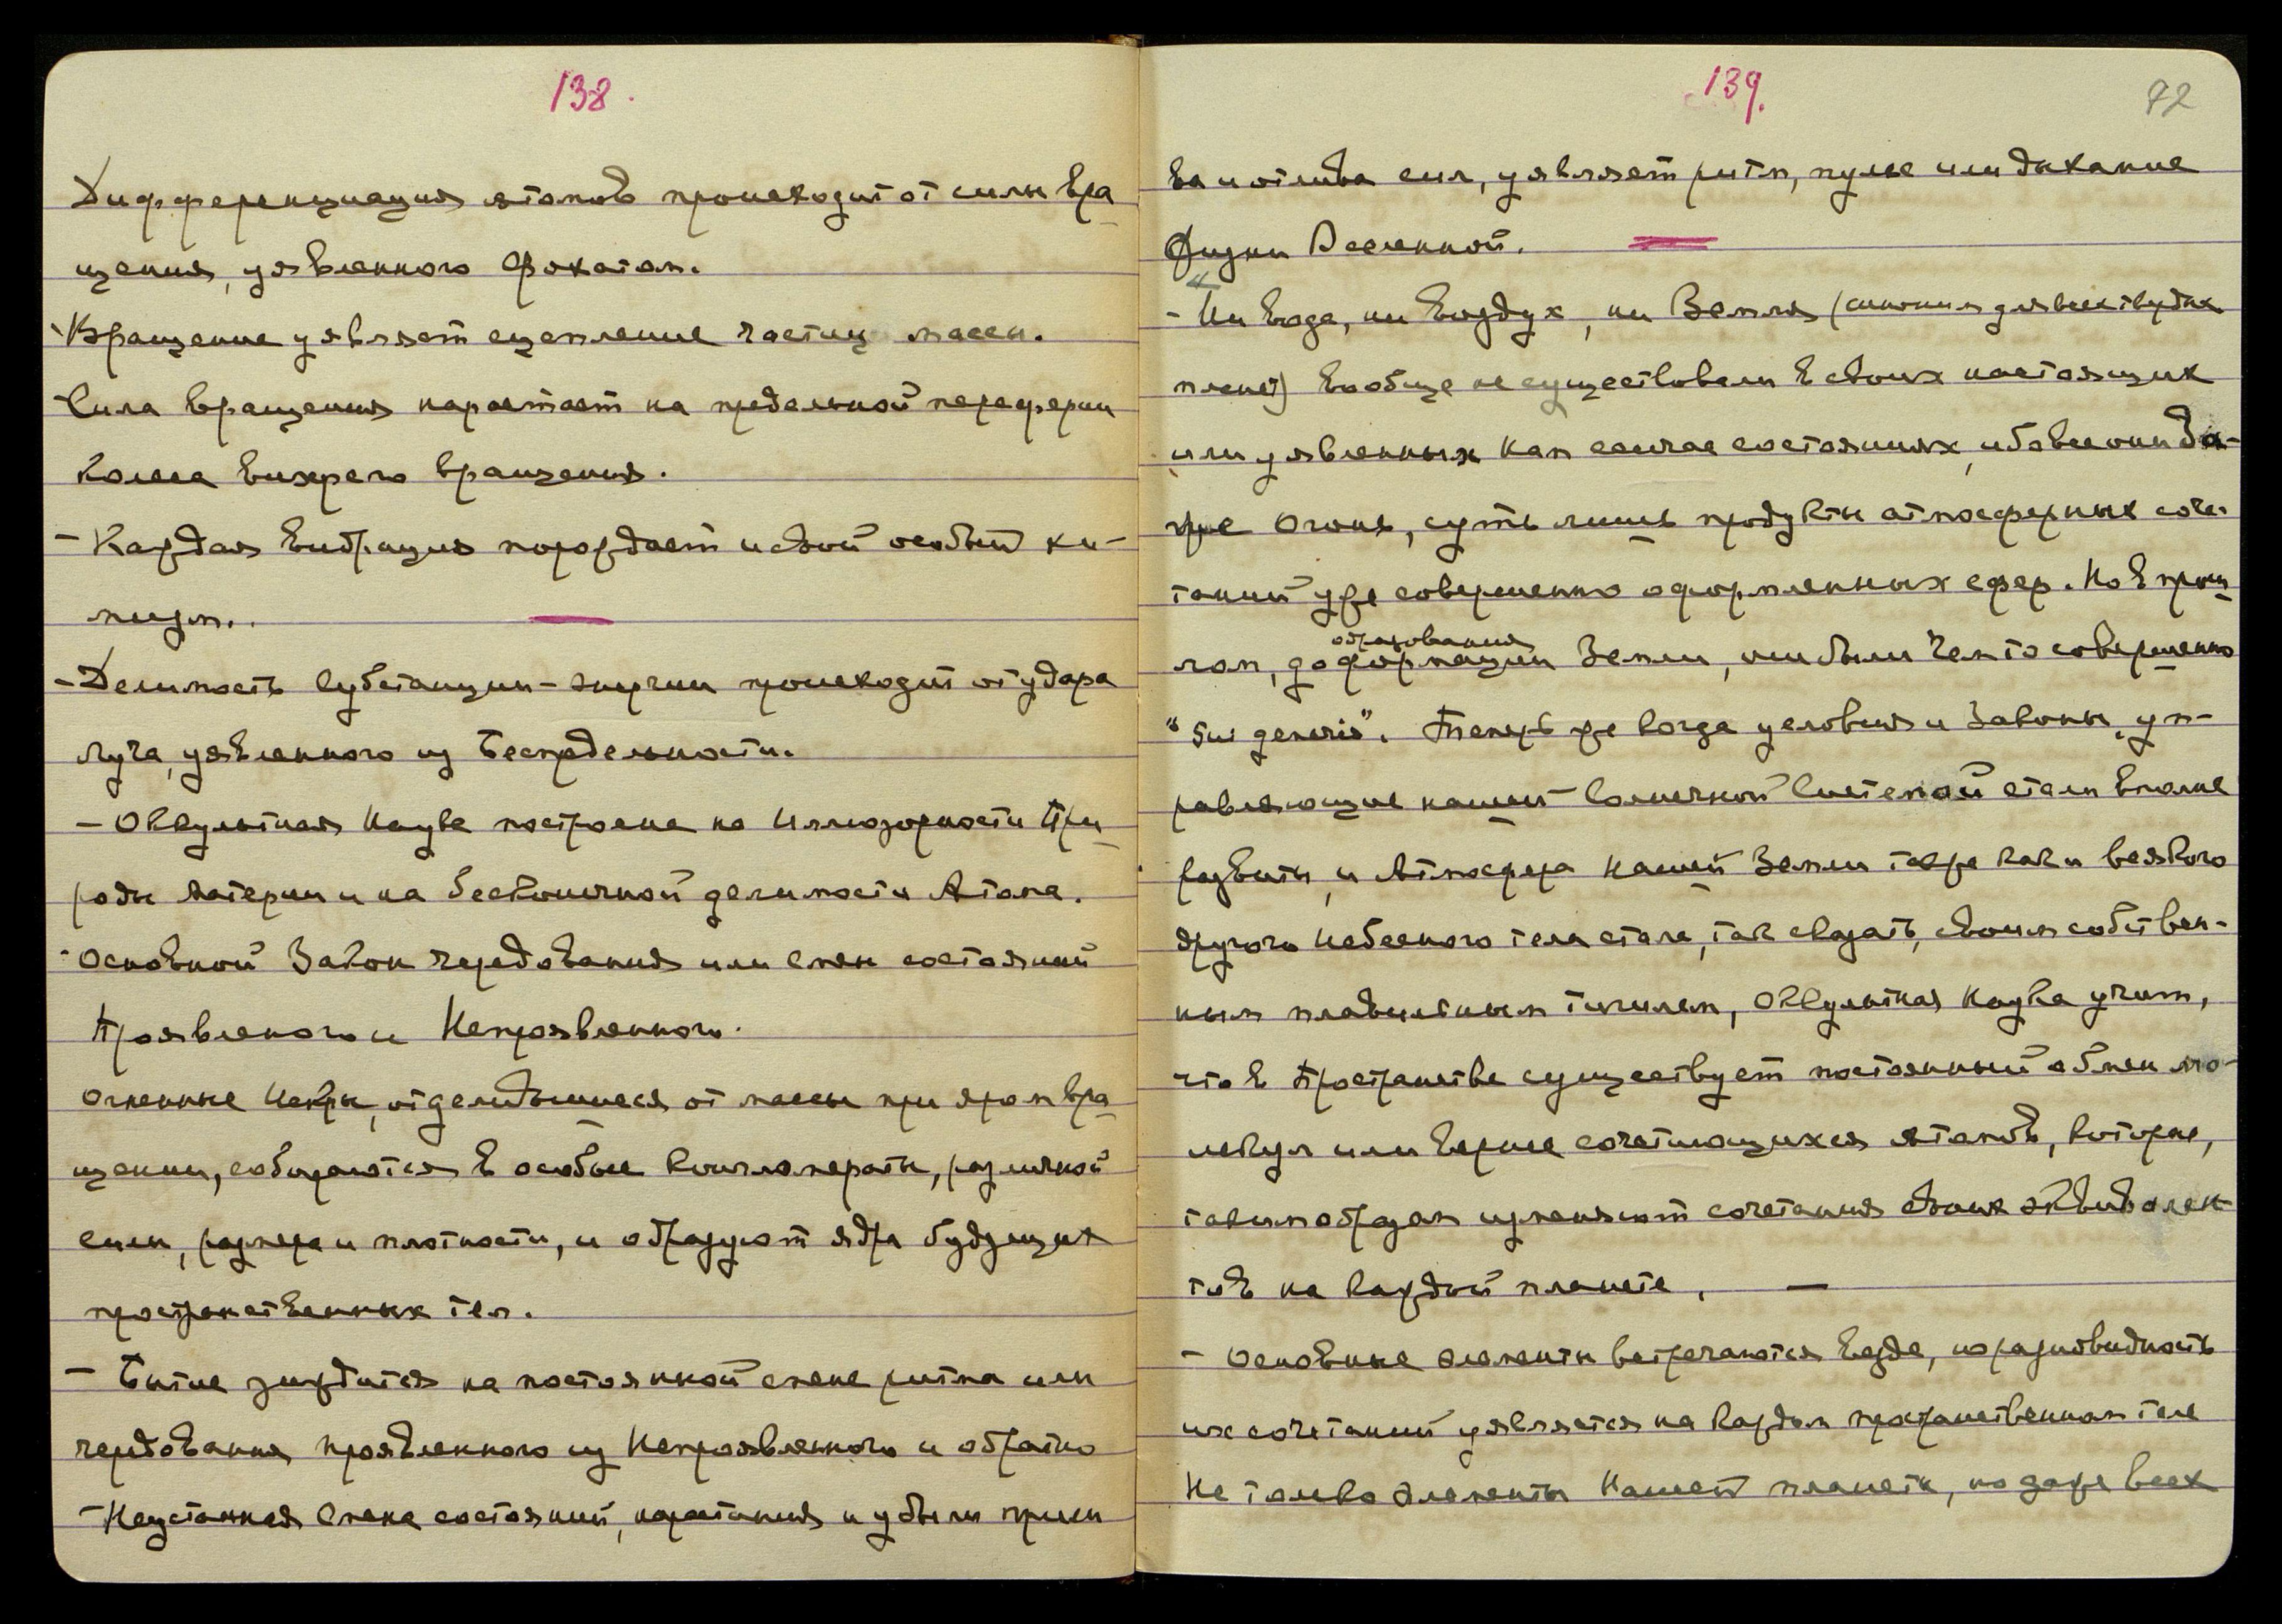 138.
Дифференциация атомов происходит от силы вра
щения, уявленного Фохатом.
Вращение уявляет сцепление частиц массы.
Сила вращения нарастает на предельной переферии
колеса вихрего вращения.
- Каждая вибрация порождает и свой особый ки-
мизм..
- Делимость Субстанции-энергии происходит от удара
луча, уявленного из Беспредельности.
- Оккультная Наука построена на Иллюзорности При
роды Материи и на бесконечной делимости Атома.
- Основной Закон чередования или смен состояний
Проявленого и Непроявленного.
Огненные Искры, отделившиеся от массы при яром вра
щении, собираются в особые конгломераты, различной
силы, размера и плотности, и образуют ядра будущих
пространственных тел.
- Бытие зиждится на постоянной смене ритма или
чередования проявленного из Непроявленного и обратно
- Неустанная Смена состояний, нарастания и убыли прили
139.
ва и отлива сил, уявляет ритм, пульс или дыхание
Жизни Вселенной.
- Ни вода, ни воздух, ни Земля (синоним для всех твердых
планет) вообще не существовали в своих настоящих
или уявленных нам сейчас состояниях, ибо все они да-
же Огонь, суть лишь продукты атмосферных соче-
таний уже совершенно оформленных сфер. Но в прош
лом, до формации Земли, они были чем то совершенно
образования
"sui generis". Теперь же когда условия и Законы, уп-
равляющие нашей Солнечной Системой стали вполне
развиты, и Атмосфера нашей Земли также как и всякого
другого Небесного тела стала, так сказать, своим собствен-
ным плавильным тигилем, Оккультная Наука учит,
что в Пространстве существует постоянный обмен мо-
лекул или вернее сочетающихся атомов, которые,
таким образом изменяют сочетания своих эквивален-
тов на каждой планете. —
- Основные элементы встречаются везде, но разновидность
их сочетаний уявляется на каждом пространственном теле
Не только элементы нашей планеты, но даже всех